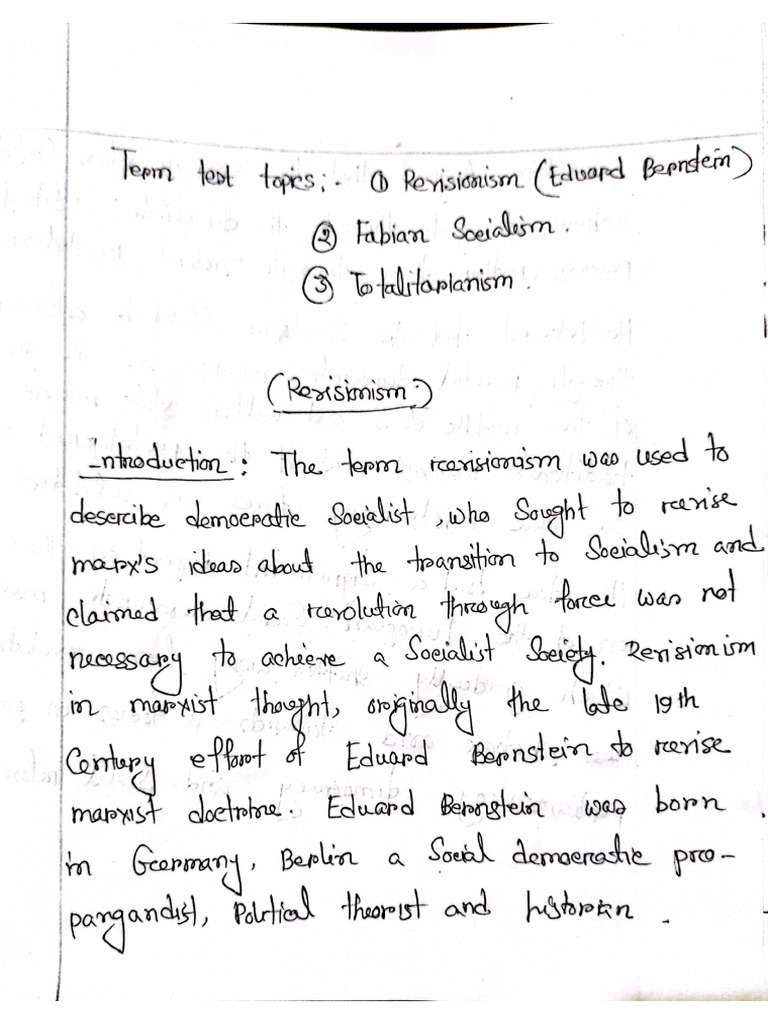 Term test topics:- ① Revisionism (Eduard Bernstein)
② Fabian Socialism.
③ Totalitarianism.
(Revisionism:)
Introduction: The term revisionism was used to
describe democratic Socialist, who Sought to revise
marx's ideas about the transition to Socialism and
claimed that a revolution through force was not
necessary to achieve a Socialist Society. Revisionism
in marxist thought, originally the late 19th
Century effort of Eduard Bernstein to revise
marxist doctrine. Eduard Bernstein was born
in Germany, Berlin a Social democratic pro-
pangandist, Political theorist and historian.